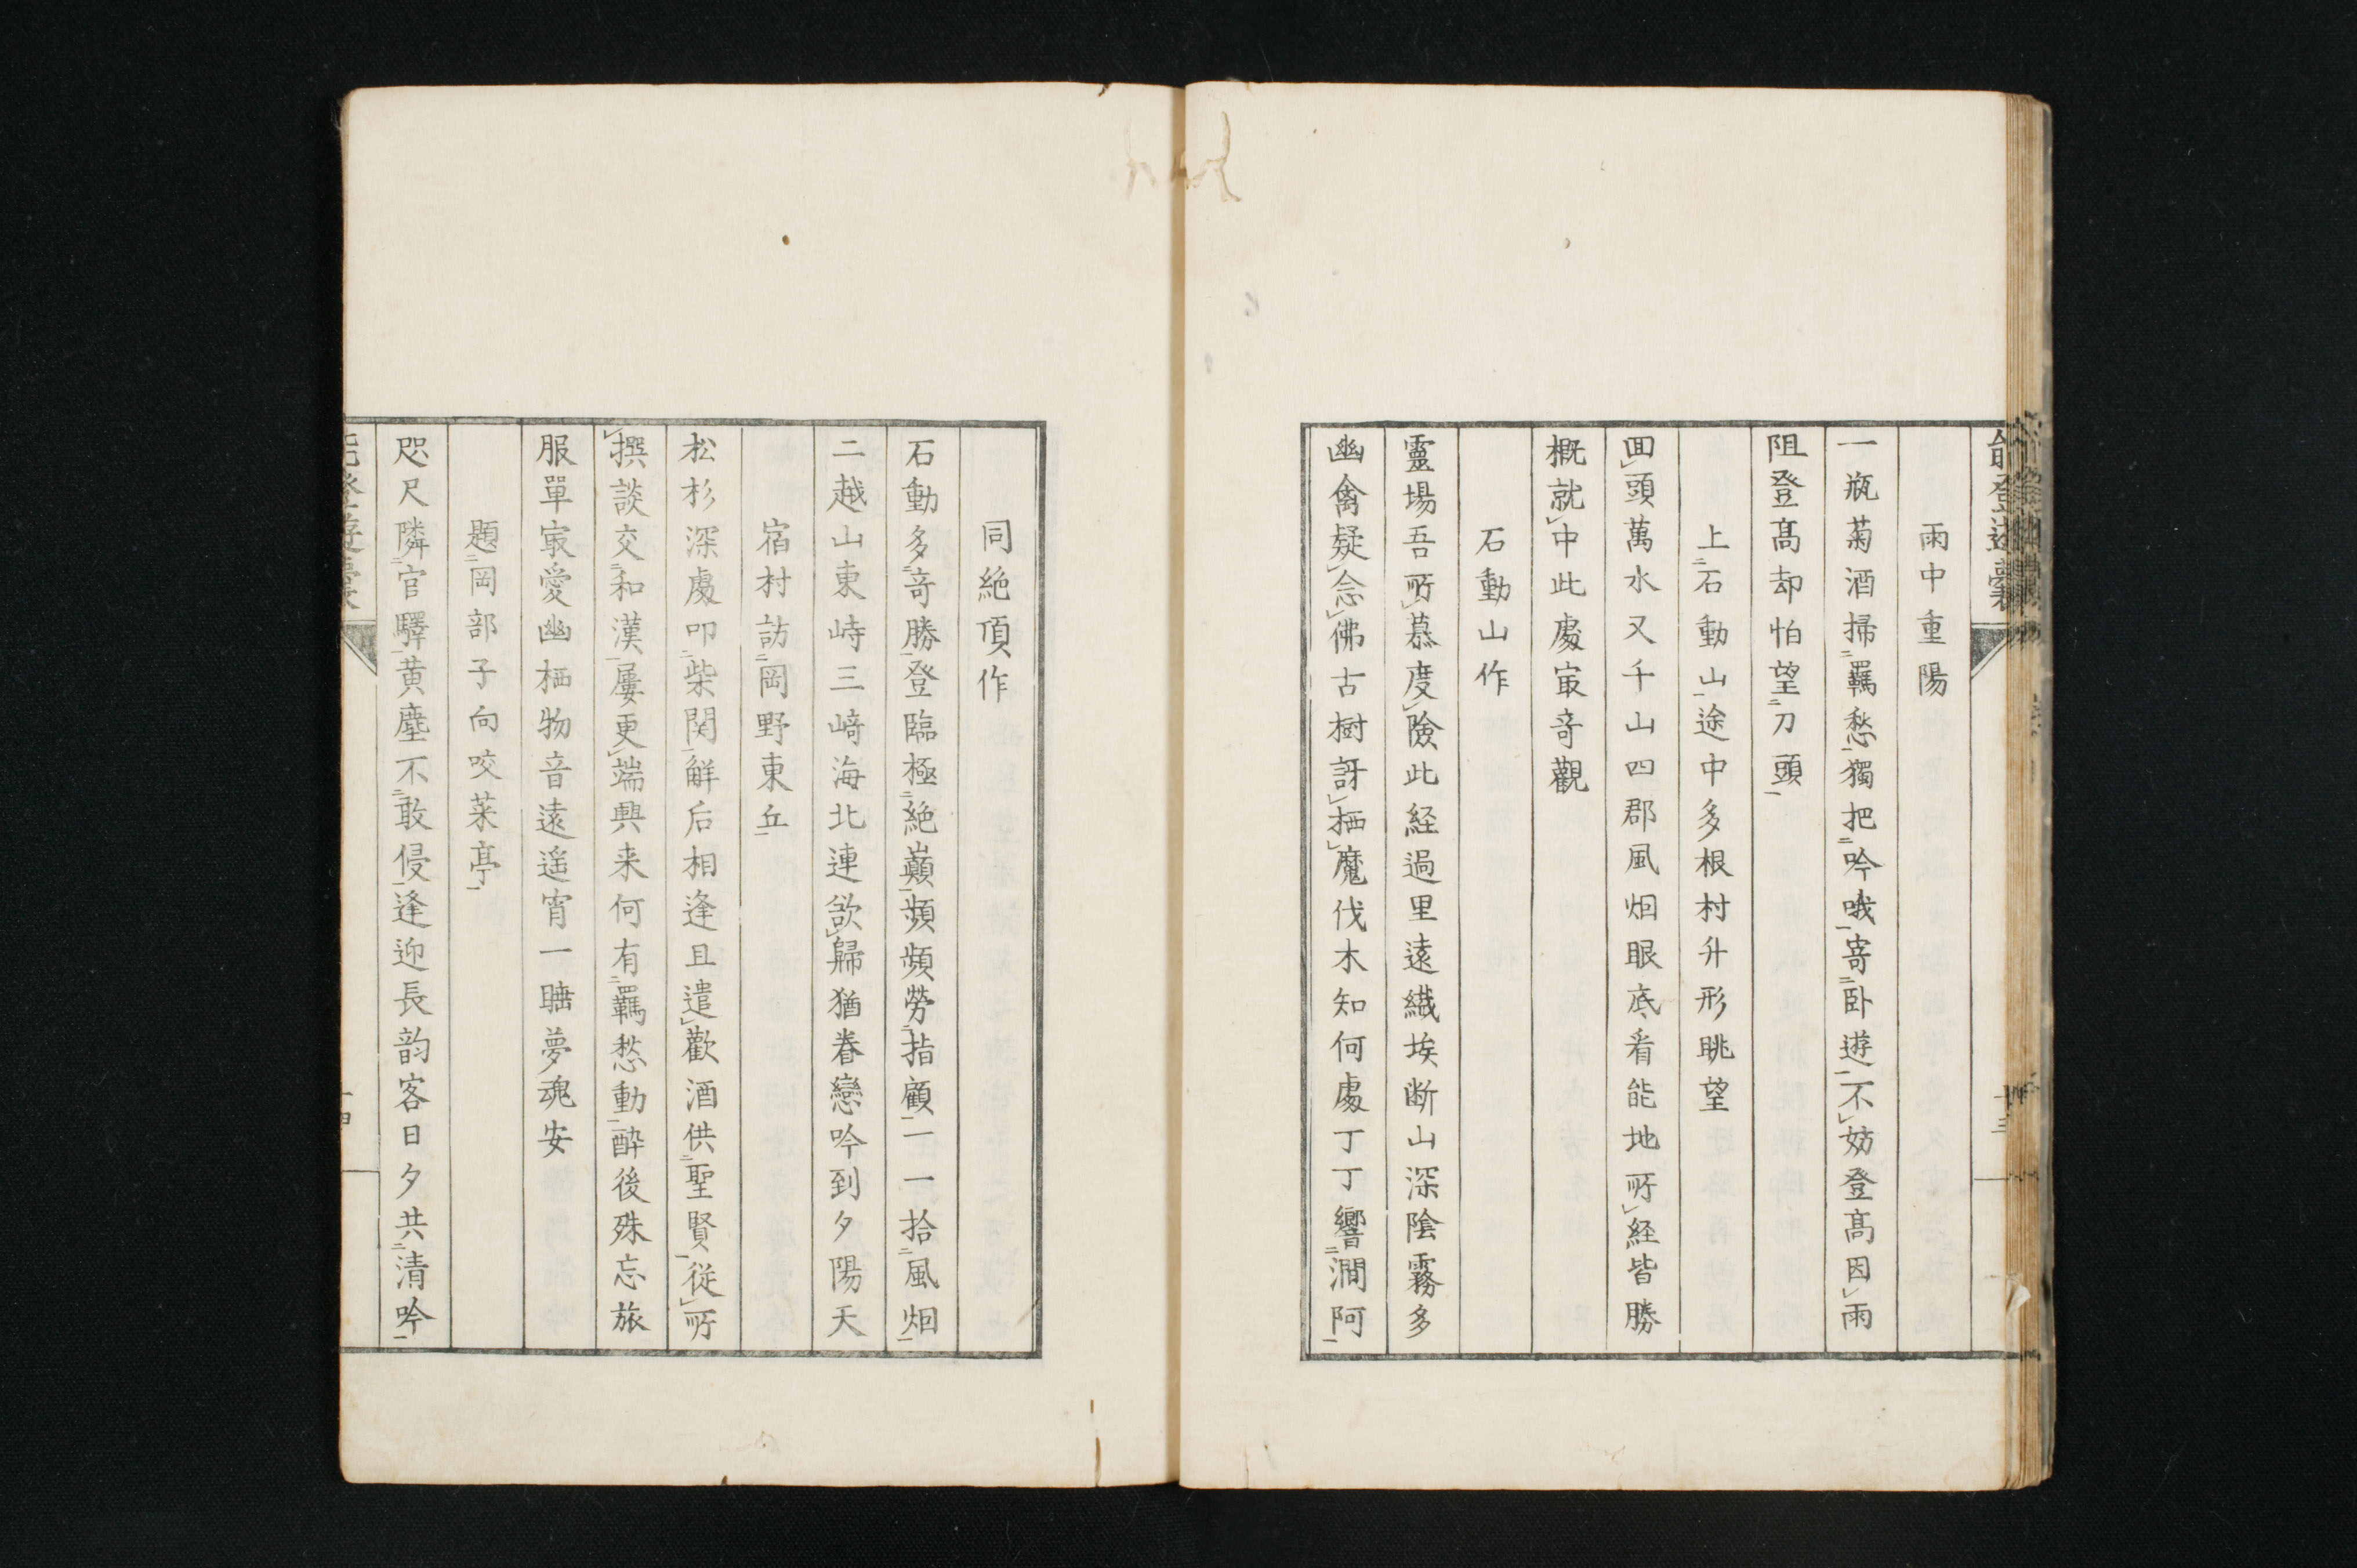 能登遊囊
十三
雨中重陽
一瓶菊酒掃羈愁獨把吟哦寄臥遊不妨登髙因雨
阻登髙却怕望刀頭
上石動山途中多根村升形眺望
回頭萬水又千山四郡風烟眼底看能地所経皆勝
概就中此處㝡奇觀
石動山作
靈場吾所慕度險此経過里遠纎埃断山深陰霧多
幽禽疑念佛古樹訝栖魔伐木知何處丁丁響澗阿
同絶頂作
石動多奇勝登臨極絶巓頻頻勞指顧一一拾風烟
二越山東峙三﨑海北連欲歸猶眷戀吟到夕陽天
宿村訪岡野東丘
松杉深處叩柴関解后相逢且遣歡酒供聖賢従所
撰談交和漢屢更端興来何有羈愁動酔後殊忘旅
服單㝡愛幽栖物音遠遥宵一睡夢魂安
題岡部子向咬菜亭
咫尺隣官驛黄塵不敢侵逢迎長韵客日夕共清吟
能登遊囊
十四